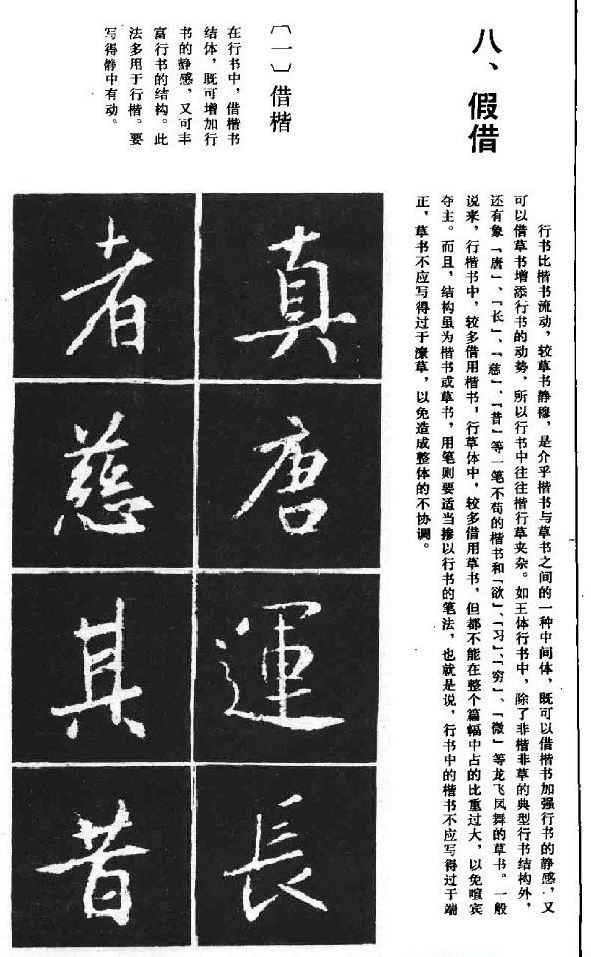 八、假借
行书比楷书流动，较草书静穆，是介乎楷书与草书之间的一种中间体，既可以借楷书加强行书的静感，又
可以借草书增添行书的动势，所以行书中往往楷行草夹杂。如王体行书中，除了非楷非草的典型行书结构外，
还有象「唐」、「长」、「慈」、「昔」等一笔不苟的楷书和「欲」、「习」、「穷」、「微」等龙飞凤舞的草书。一般
说来，行楷书中，较多借用楷书，行草体中，较多借用草书，但都不能在整个篇幅中占的比重过大，以免喧宾
夺主。而且，结构虽为楷书或草书，用笔则要适当掺以行书的笔法，也就是说，行书中的楷书不应写得过于端
正，草书不应写得过于潦草，以免造成整体的不协调。
〔一〕借楷
在行书中，借楷书
结体，既可增加行
书的静感，又可丰
富行书的结构。此
法多用于行楷。要
写得静中有动。
真唐運長
者慈其昔